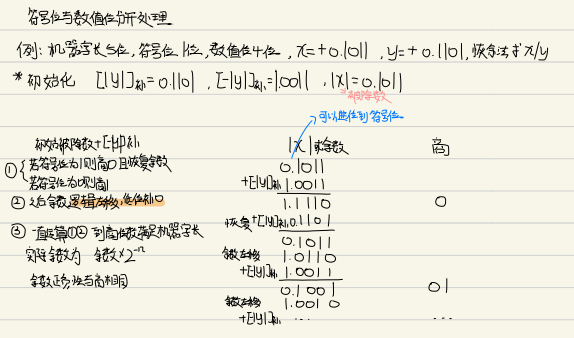 符号位与数值位分开处理
例: 机器字长5位, 符号位1位, 数值位4位, x=+0.1011, y=+0.1101, 恢余法求x/y
*初始化 [|y|]补=0.1101, [-|y|]补=1.0011, |x|=0.1011
被除数
可以左移到符号位
初始被除数+[-|y|]补
|x| 余数
商
① 若符号位为1则商0且恢复余数
若符号位为0则商1
② 之后余数逻辑左移, 低位补0
③ 一直运算①② 到商位数等于机器字长
实际余数为 余数×2⁻ⁿ
余数正负性与商相同
0.1011
+[-|y|]补 1.0011
1.1110 0
恢复+[|y|]补 0.1101
0.1011
余数左移 1.0110
+[-|y|]补 1.0011
0.1001 01
余数左移 1.0010
+[-|y|]补 ... ...